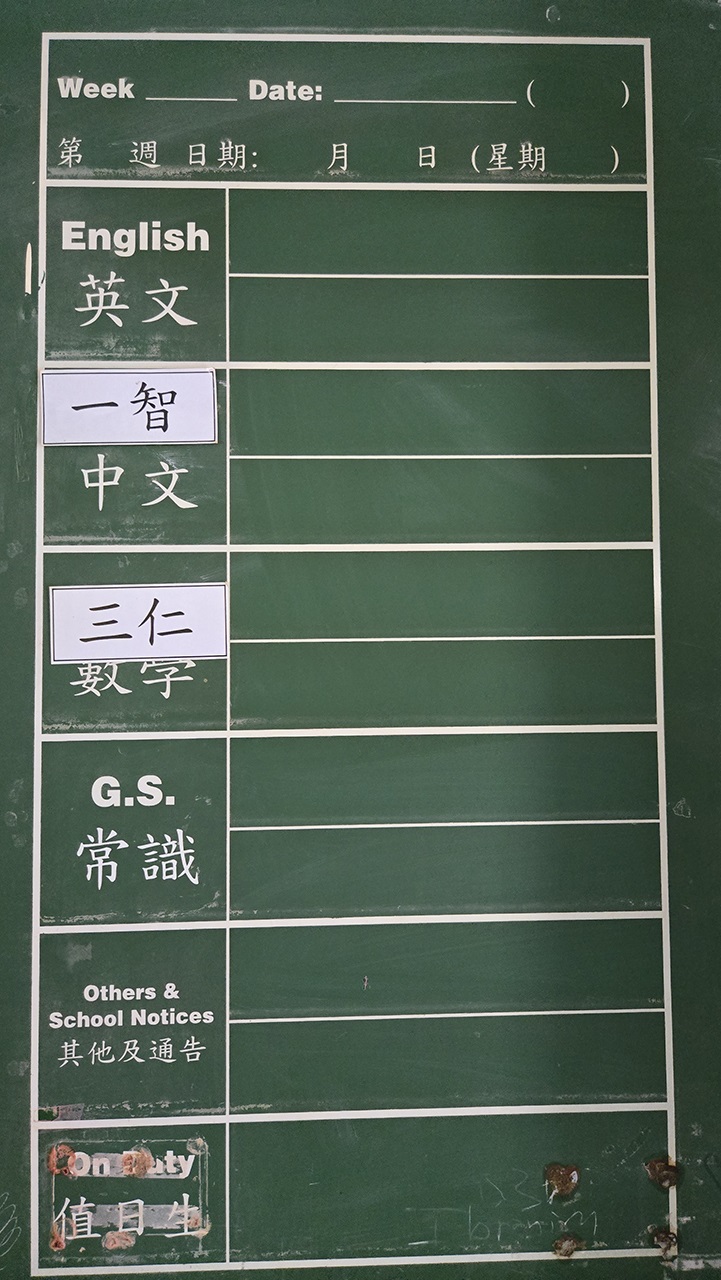 Week ______ Date: ____________ (       )
第 週 日期: 月 日 (星期 )
English
英文
一智
中文
三仁
數學
G.S.
常識
Others &
School Notices
其他及通告
On Duty
值日生